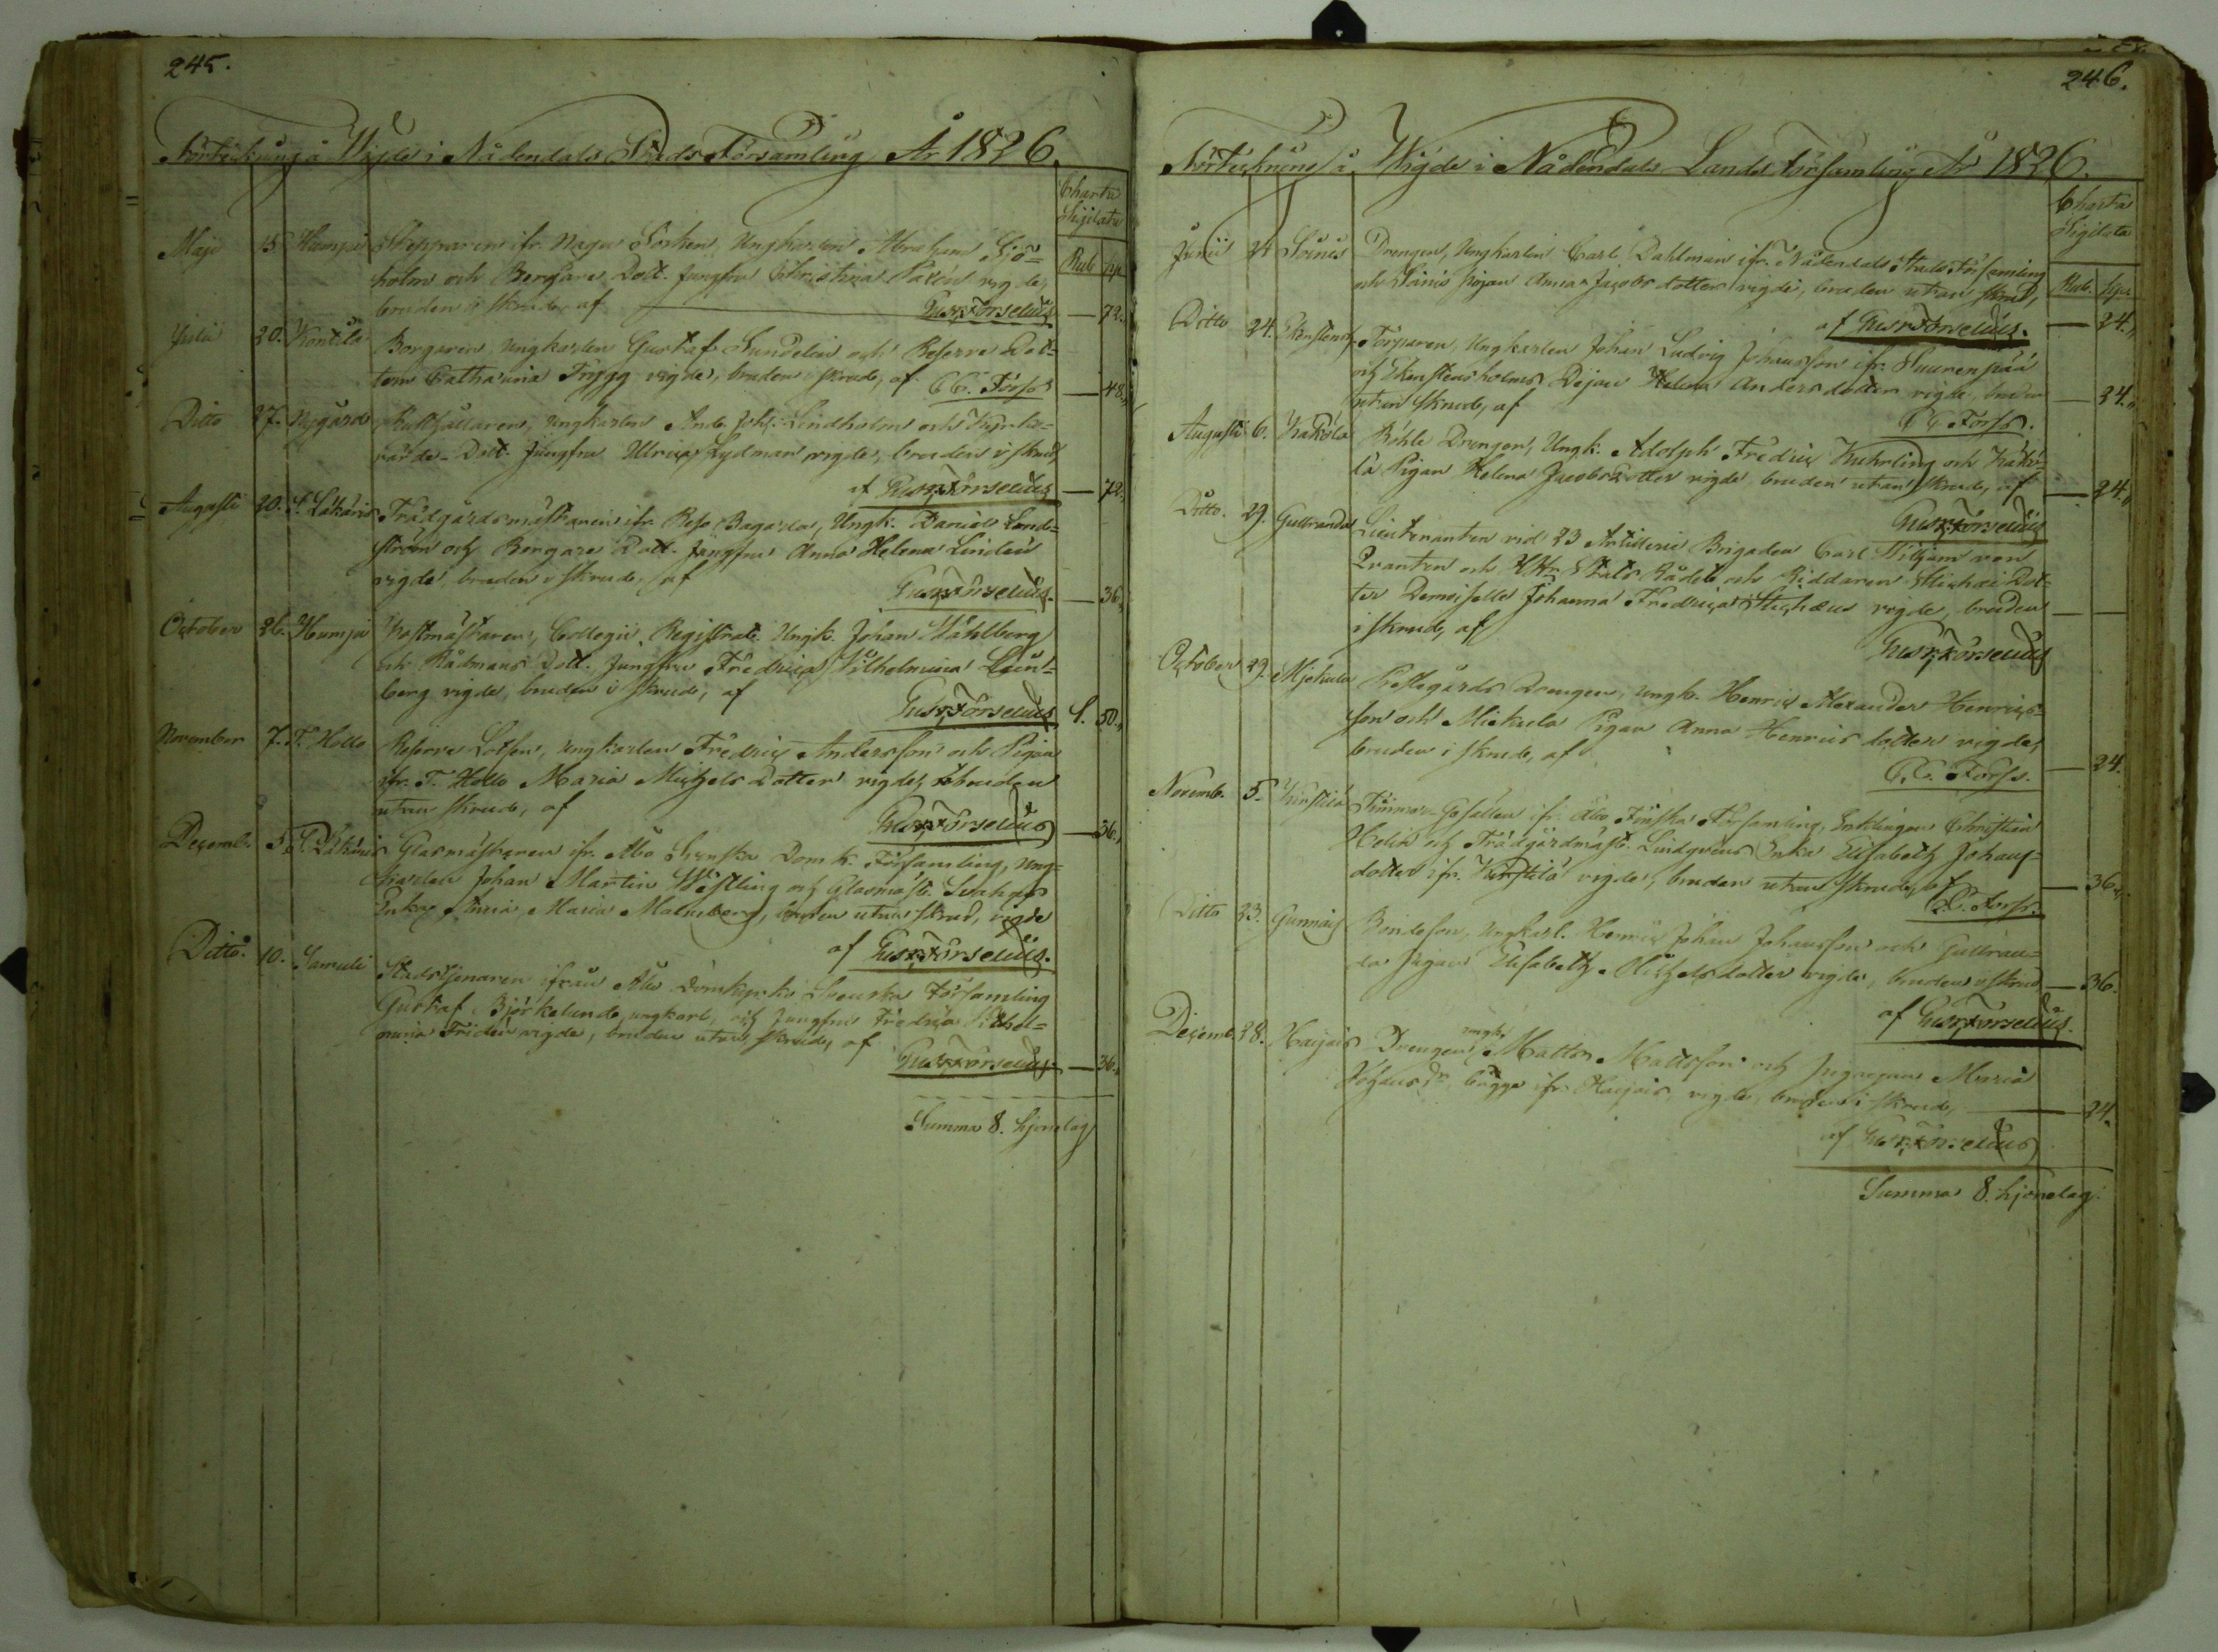 245.
Förteckning å Wigde i Nådendals Stads Församling År 1826.
Charta Sigilata
Rub. kop.
Maji 15. Humpi Skepparen ifr. Nagu Socken, Ungkarlen Abraham Sjö=
holm och Borgare Dott. Jungfru Christina Palén vigde,
bruden i skrud, af Gust. Forselius — 72.
Julii 20. Konttila Borgaren, Ungkarlen Gustaf Sundelin och Reserve Dot=
tern Catharina Trygg vigde, bruden i skrud, af C.C. Forss — 48.
Ditto 27. Nygård Ungkarlen And. Joh. Lindholm och
Dott. Jungfru Ulrica Lydman vigde, bruden i skrud,
af Gust. Forselius — 72.
Augusti 20. T. Lakaris Trädgårdsmästaren ifr. Reso Ungk. Daniel Lind=
ström och Borgare Dott. Jungfru Anna Helena Lindén
vigde, bruden i skrud, af Gust. Forselius. — 36.
October 26. Humpi Postmästaren, Collegii Registrat. Ungk. Johan Wahlberg
och Rådmans Dott. Jungfru Fredrica Wilhelmina
berg vigde, bruden i skrud, af Gust. Forselius 1. 50.
November 7. T. Hollo Reserve Lotsen, Ungkarlen Fredric Andersson och Pigan
ifr. T. Hollo Maria Michels Dotter vigde, bruden
utan skrud, af Gust. Forselius — 36.
Decemb. 5. T. Lakaris Glasmästaren ifr. Åbo Svenska Domk. Församling, Ung=
karlen Johan Martin Westling och Glasmäst.
Enka Maria Malmberg, bruden utan skrud, vigde
af Gust. Forselius.
Ditto. 10. Samuli Stadstjenaren ifrån Åbo Domkyrko Svenska Församling
Gustaf Björkelund, ungkarl, och Jungfru Fredrica Wilhel=
mina Fridén vigde, bruden utan skrud, af
Gust. Forselius. — 36.
Summa 8. hjonelag
246.
Förteckning å Wigde i Nådendals Lands Församling År 1826.
Charta Sigilata
Rub. kop.
Junii 24 Soinis Drengen, Ungkarlen Carl Dahlman ifr. Nådendals Stads Församling
och Soinis pigan Anna Jacobs dotter vigde, bruden utan skrud,
af Gust. Forselius. — 24.
Ditto 24. Torparen, Ungkarlen Johan Ludvig Johansson ifr. Nuurenpää
och Ekenstensholms Dejan Helena Anders dotter vigde, bruden
utan skrud, af C.C. Forss. — 24.
Augusti 6. Kakola Röhle Drengen, Ungk. Adolph Fredric Kuhrling och Kako=
la Pigan Helena Jacobs dotter vigde bruden utan skrud, af — 24.
Gust. Forselius
Ditto. 29. Gullranda Lieutenanten vid 23 Artilleri Brigaden Carl Wilhelm von
Qvanten och Stats Rådets och Riddaren Dot=
ter Demoiselle Johanna Fredrica vigde, bruden
i skrud, af — —
Gust. Forselius
October 29. Prestegårds Drengen, Ungk. Henric Alexander Henrics=
son och Mickula Pigan Anna Henrics dotter vigde,
bruden i skrud, af C.C. Forss. — 24.
Novemb. 5. Timmer-Gesällen ifr. Åbo Finska Församling, Enklingen Christian
Helin och Trädgårdmäst. Lindqvists Enka Elisabeth Johans=
dotter ifr. vigde, bruden utan skrud, af — 36.
C.C. Forss.
Ditto 23. Gunnais Bondeson, Ungkarl. Henric Johan Johansson och Gullran=
da Pigan Elisabeth Michels dotter vigde, bruden i skrud — 36.
af Gust. Forselius.
Decemb. 28. Haijais Drengen, ungk. Matts Mattsson och Maria
Johans Dr. bägge ifr. Haijais, vigde, bruden i skrud, — 24.
af Gust. Forselius
Summa 8. hjonelag.